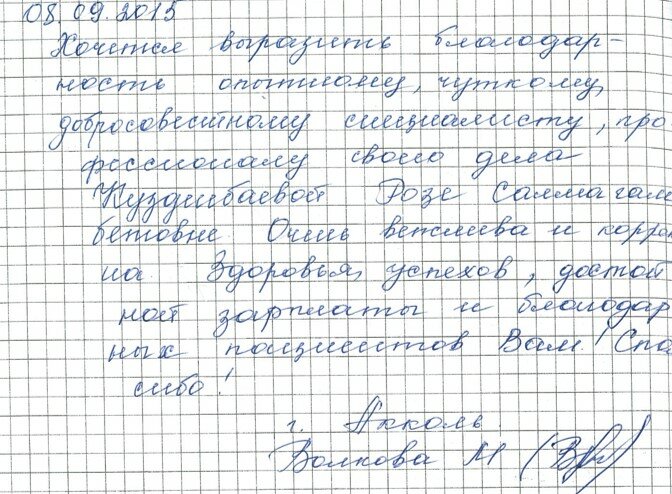 08.09.2015
Хочется выразить благодар-
ность опытному, чуткому,
добросовестному специалисту, про
фессионалу своего дела
Кузданбаевой Розе Салмагам
бетовне. Очень вежлива и коррек
на Здоровья, успехов, достой
ной зарплаты и благодар
ных пациентов Вам! Спа
сибо!
г. Акколь
Волкова М